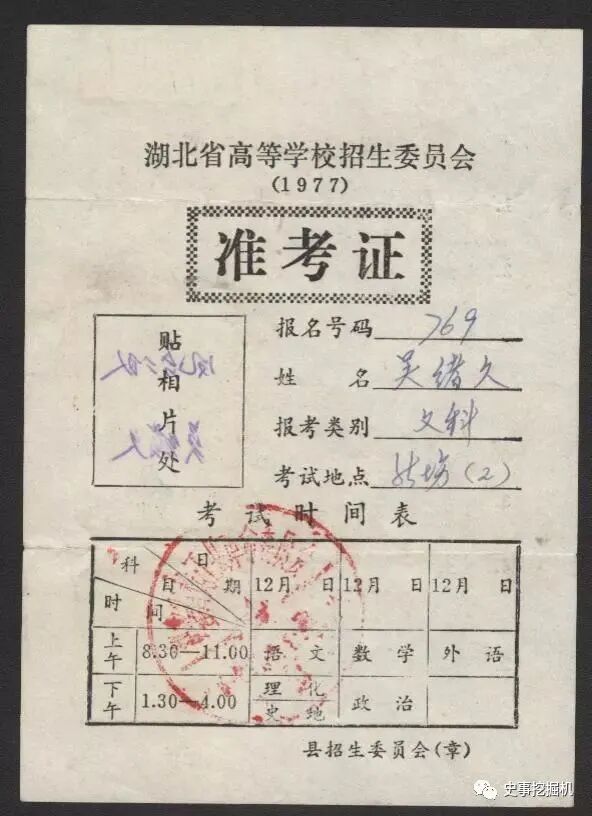 湖北省高等学校招生委员会
(1977)
准考证
贴相片处
报名号码 769
姓名 吴绪久
报考类别 文科
考试地点 (2)
考试时间表
科目 日期 时间 12月 日 12月 日 12月 日
上午 8.30—11.00 语文 数学 外语
下午 1.30—4.00 理化 史地 政治
县招生委员会(章)
史事挖掘机